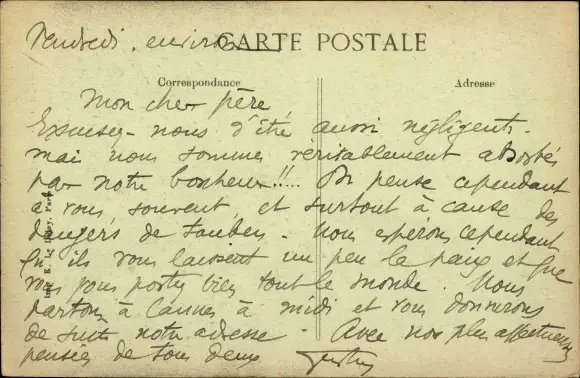 Vendredi, environ
CARTE POSTALE
Correspondance
Adresse
Mon cher père
Excusez-nous d'être aussi négligents.
mai nous sommes véritablement absorbés
par notre bonheur!!.... On pense cependant
à vous souvent et surtout à cause des
dangers de Tauben. Nous esperons cependant
qu'ils vous laissent un peu la paix et que
vous vous portez bien tout le monde. Nous
partons à Cannes à midi et vous donnerons
de suite notre adresse. Avec nos plus affectueuses
pensées de tous deux
Imp. E. Le Deley, Paris